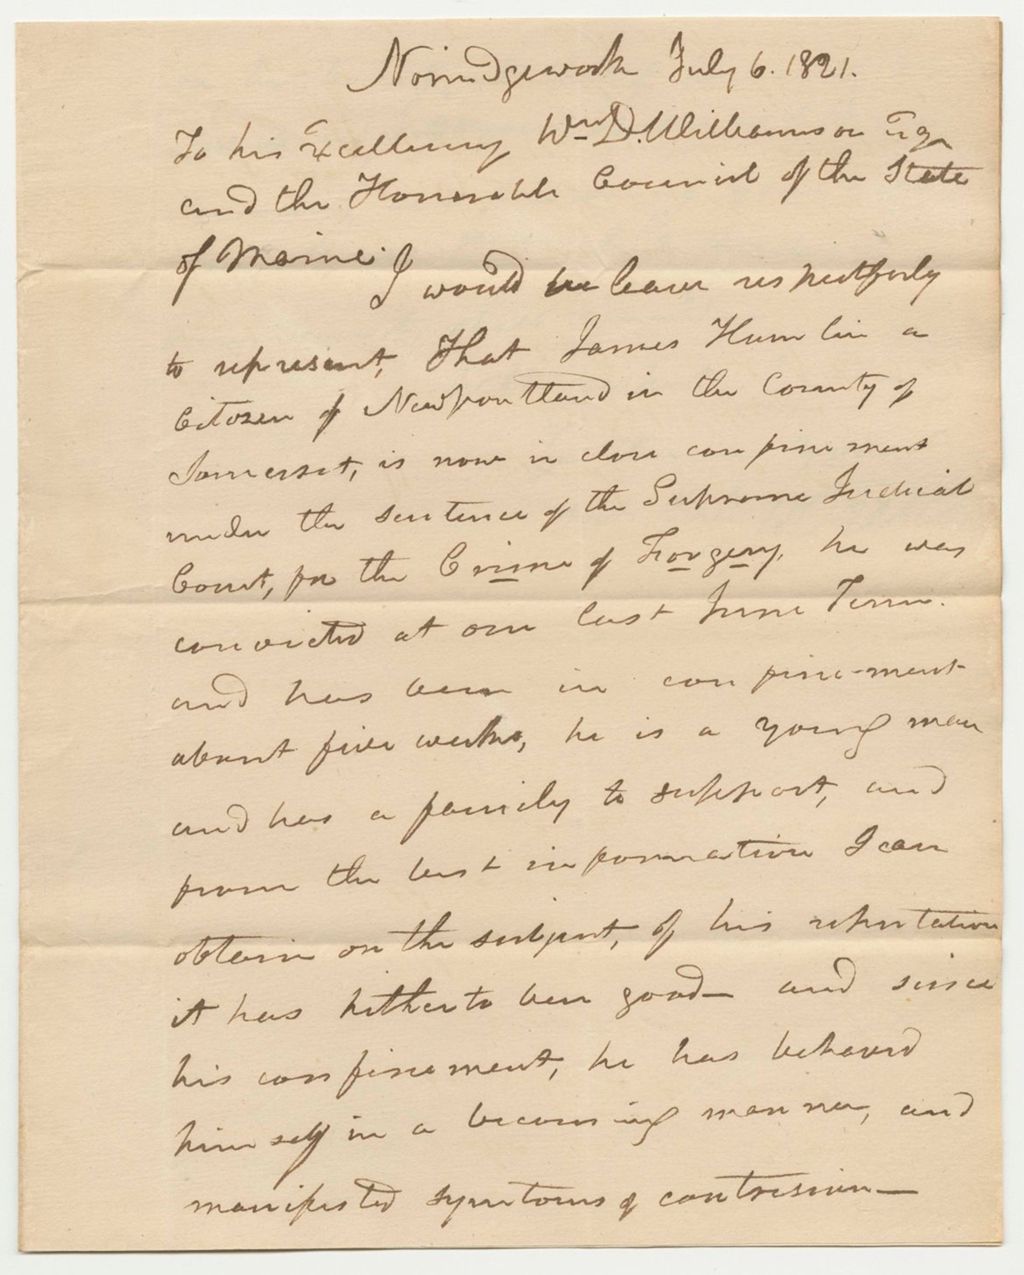 Norridgewock July 6. 1821.
To his Excellency Wm D. Williamson Esqr
and the Honorable Council of the State
of Maine. I would be leave respectfully
to represent, That James Hamlin a
Citozen of New Portland in the County of
Somerset, is now in close confinement
under the sentence of the Supreme Judicial
Court, for the Crime of Forgery, he was
convicted at our last June Term.
and has been in confine-ment
about five weeks, he is a young man
and has a family to support, and
from the best information I can
obtain on the subject, of his reputation
it has hitherto been good— and since
his confinement, he has behaved
himself in a becoming manner, and
manifested symtoms of contrision—